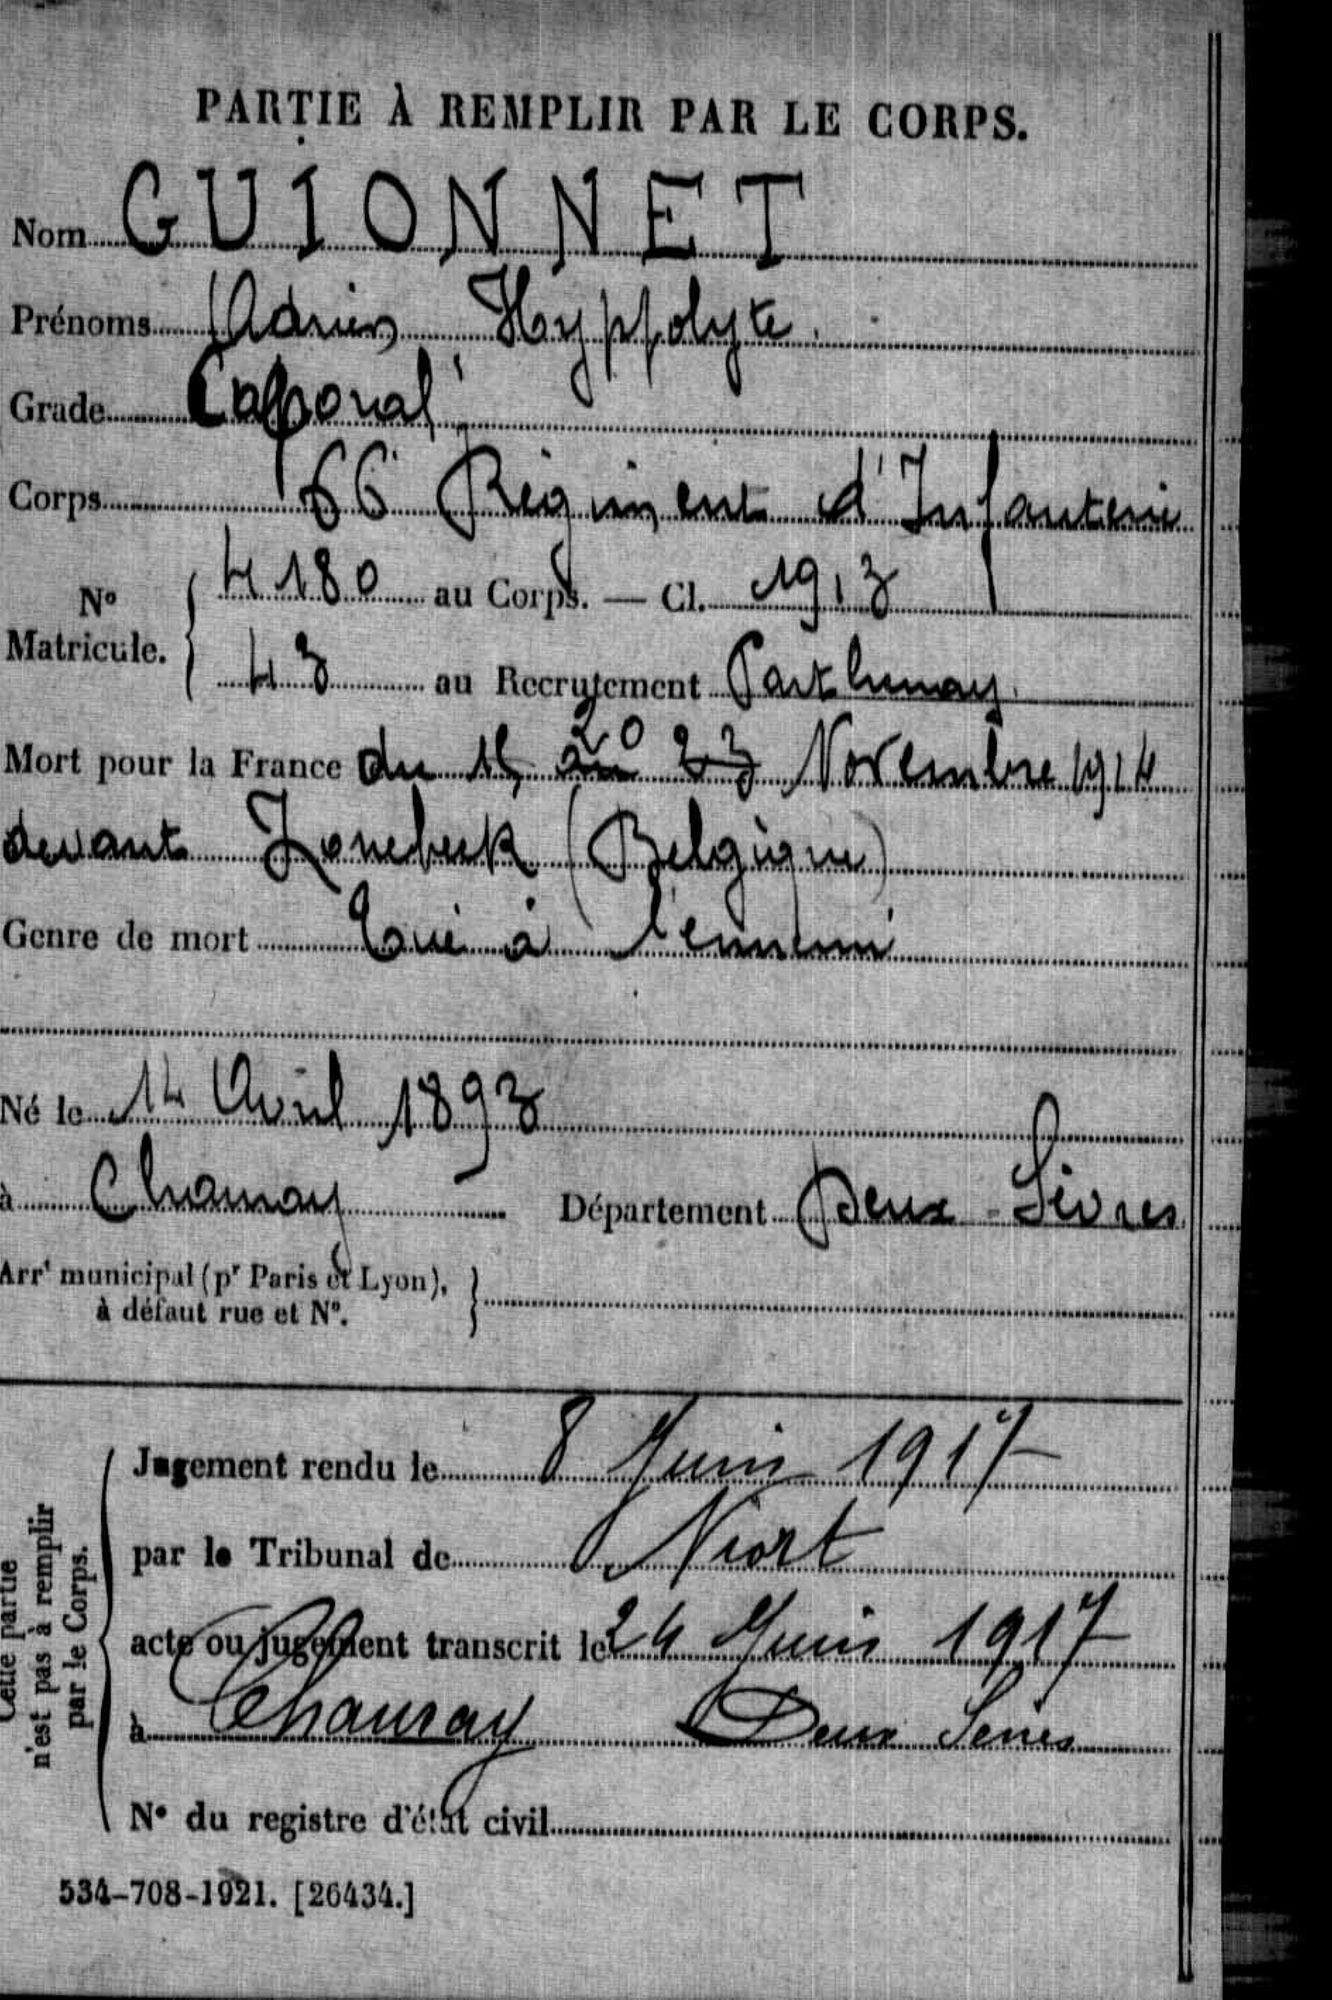 PARTIE À REMPLIR PAR LE CORPS.
Nom GUIONNET
Prénoms Adrien Hyppolyte.
Grade Caporal
Corps 66 Régiment d'Infanterie
N° Matricule. { 4180 au Corps. — Cl. 1913
43 au Recrutement Parthenay
Mort pour la France du 15 au 20 23 Novembre 1914
devant Zonebeck (Belgique)
Genre de mort Tué à l'ennemi
Né le 14 Avril 1893
à Chauray Département Deux-Sèvres
Arrt municipal (pr Paris et Lyon), à défaut rue et N°. }
Cette partie n'est pas à remplir par le Corps.
Jugement rendu le 8 Juin 1917
par le Tribunal de Niort
acte ou jugement transcrit le 24 Juin 1917
à Chauray Deux Sèvres
N° du registre d'état civil
534-708-1921. [26434.]